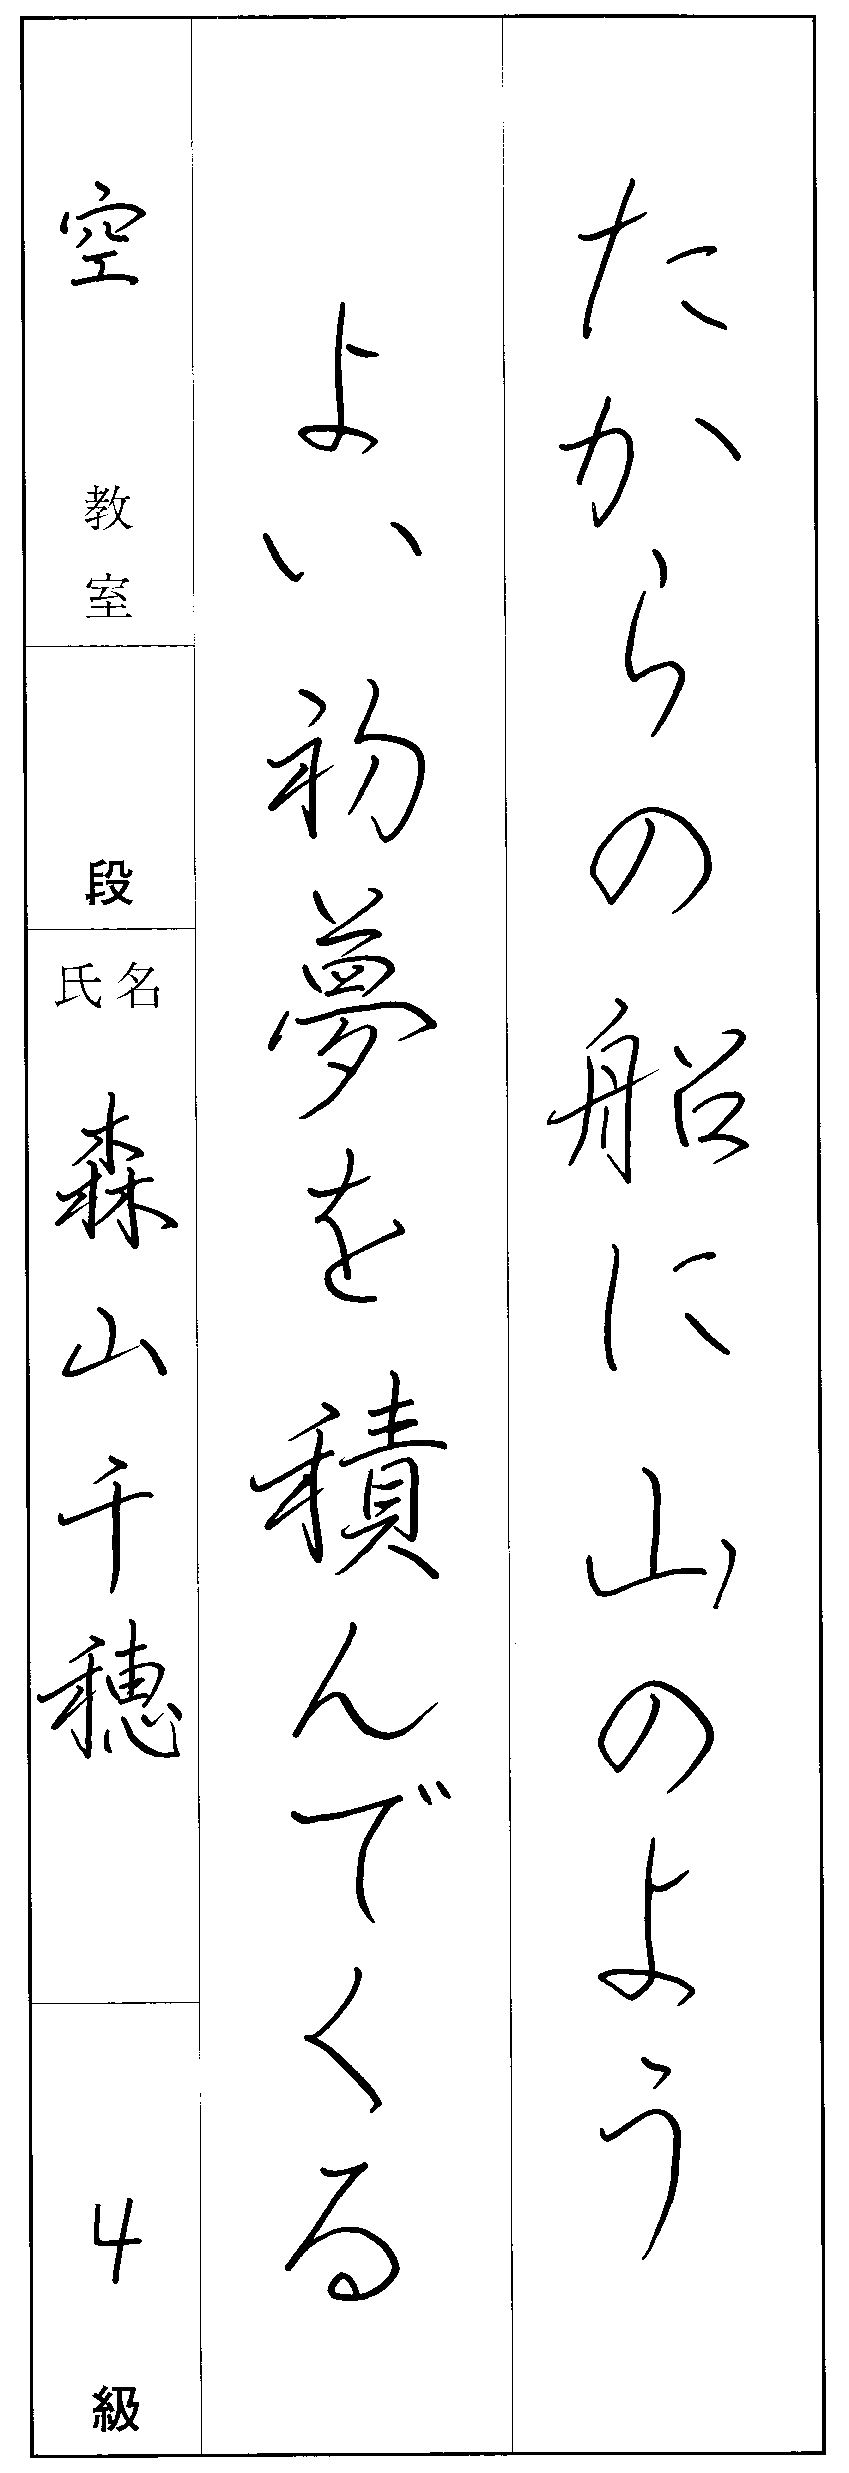 たからの船に山のよう
よい初夢を積んでくる
空 教室
段
氏名 森山千穂
4級